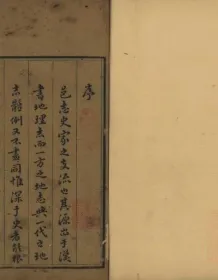 序
邑志史家之支流也其源出于漢
書地理志而一方之地志與一代之地
志體例又不盡同惟深于史者能